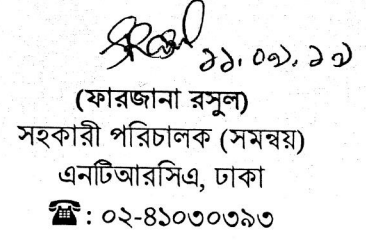 ১১.০৭.১৭
(ফারজানা রসুল)
সহকারী পরিচালক (সমন্বয়)
এনটিআরসিএ, ঢাকা
☎: ০২-৪১০৩০৩৯৩